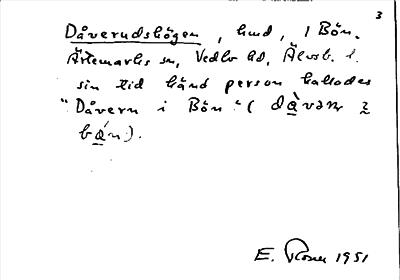 3
Dåverudshögen, hmd, i Bön.
Ärtemarks sn, Vedbo hd, Älvsb. l.
sin tid känd person kallades
"Dåvern i Bön" (dàvər i
bǻn).
E. 1951